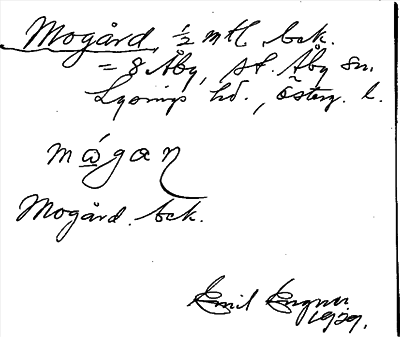 Mogård, ½ mtl, bck.
= 8 Åby, st. Åby sn.
Lysings hd., Österg. l.
mågaη
Mogård. bck.
Emil
1929.